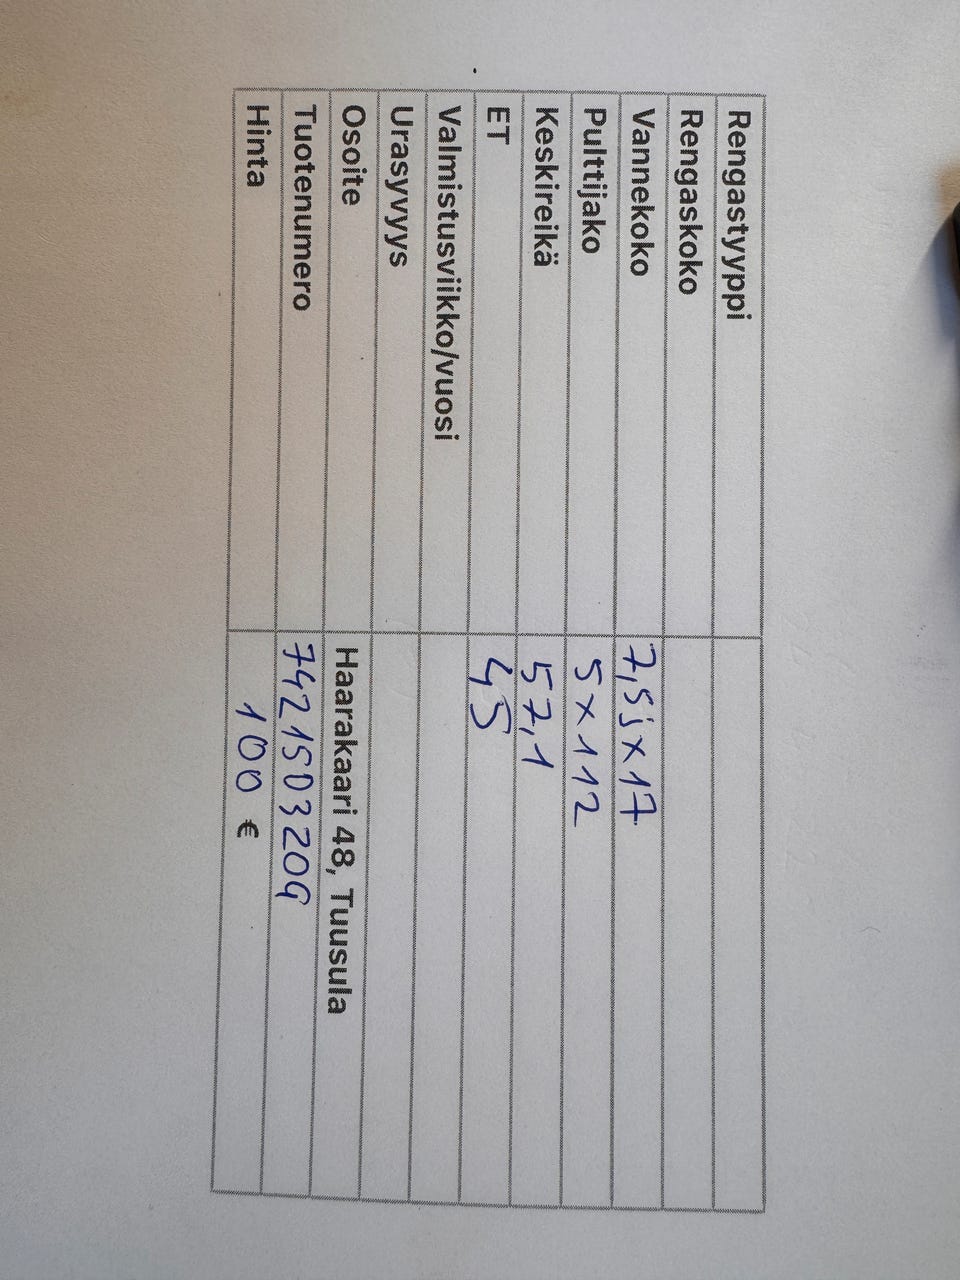 Rengastyyppi
Rengaskoko
Vannekoko 7,5jx17
Pulttijako 5x112
Keskireikä 57,1
ET 45
Valmistusviikko/vuosi
Urasyvyys
Osoite Haarakaari 48, Tuusula
Tuotenumero 742150320G
Hinta 100 €